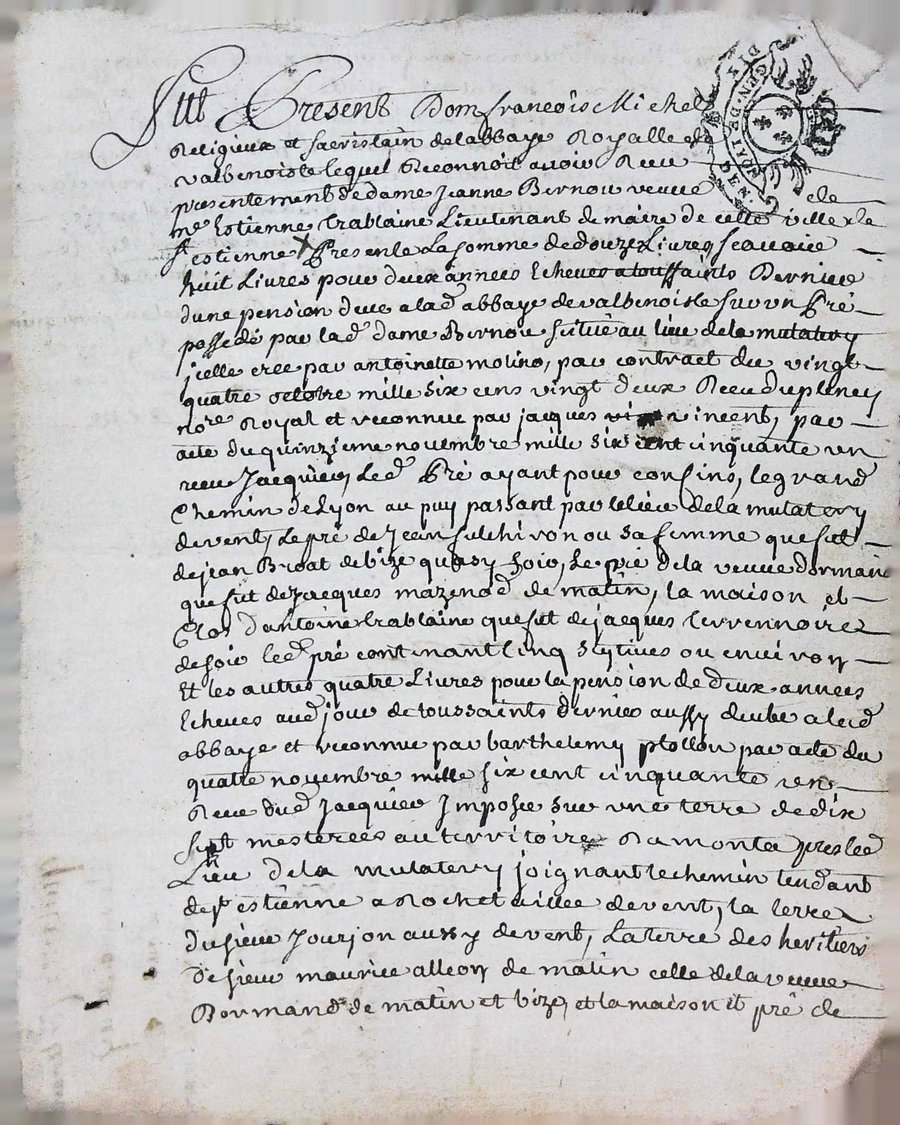 Fut Present Dom francois Michel
Religieux et sacristain de labbaye Royalle de
valbenoiste lequel Reconnoit avoir Receu
presentement de dame Jeanne Bernou veuve de
me Estienne trablaine Lieutenant de maire de cette ville de
st estienne presente La somme de douze Livres scavoir
huit Livres pour deux annees Echeues a toussaints Dernier
dune pension deue a lad abbaye de valbenoiste sur un Pré
possedé par lad dame Bernou situé au lieu de la mutatery
jcelle cree par antoinette molino, par contract du vingt
quatre octobre mille six cens vingt deux Receu
nore Royal et reconnue par jacques vincent, par
acte du quinzieme novembre mille six cent cinquante un
receu Jacquier, Led Pré ayant pour confins, le grand
Chemin de Lyon au puy passant par le lieu de la mutatery
de vent, Le pré de Jean ou sa femme que fut
de jean Broat de bize quasy soir, Le pré de la veuve dormand
que fut de Jacques mazenod de matin, la maison et
Clos dantoine trablaine que fut de jacques terrennoire
de soir led pré contenant cinq seytives ou environ
Et les autres quatre Livres pour la pension de deux annees
Echeues aud jour de toussaints dernier aussy deube a lad
abbaye et reconnue par barthelemy plotton par acte du
quatre novembre mille six cent cinquante un
Receu dud Jacquier Jmposee sur une terre de dix
sept mesterees au territoire Damonta pres led
Lieu de la mutatery joignant le chemin tendant
de st estienne a Rochetaillee de vent, la terre
du sieur Jourjon aussy de vent, La terre des heritiers
de sieur maurice alleon de matin celle de la veuve
Dormand de matin et bize, et la maison et pré de
GEN. DE
DIX DEN.